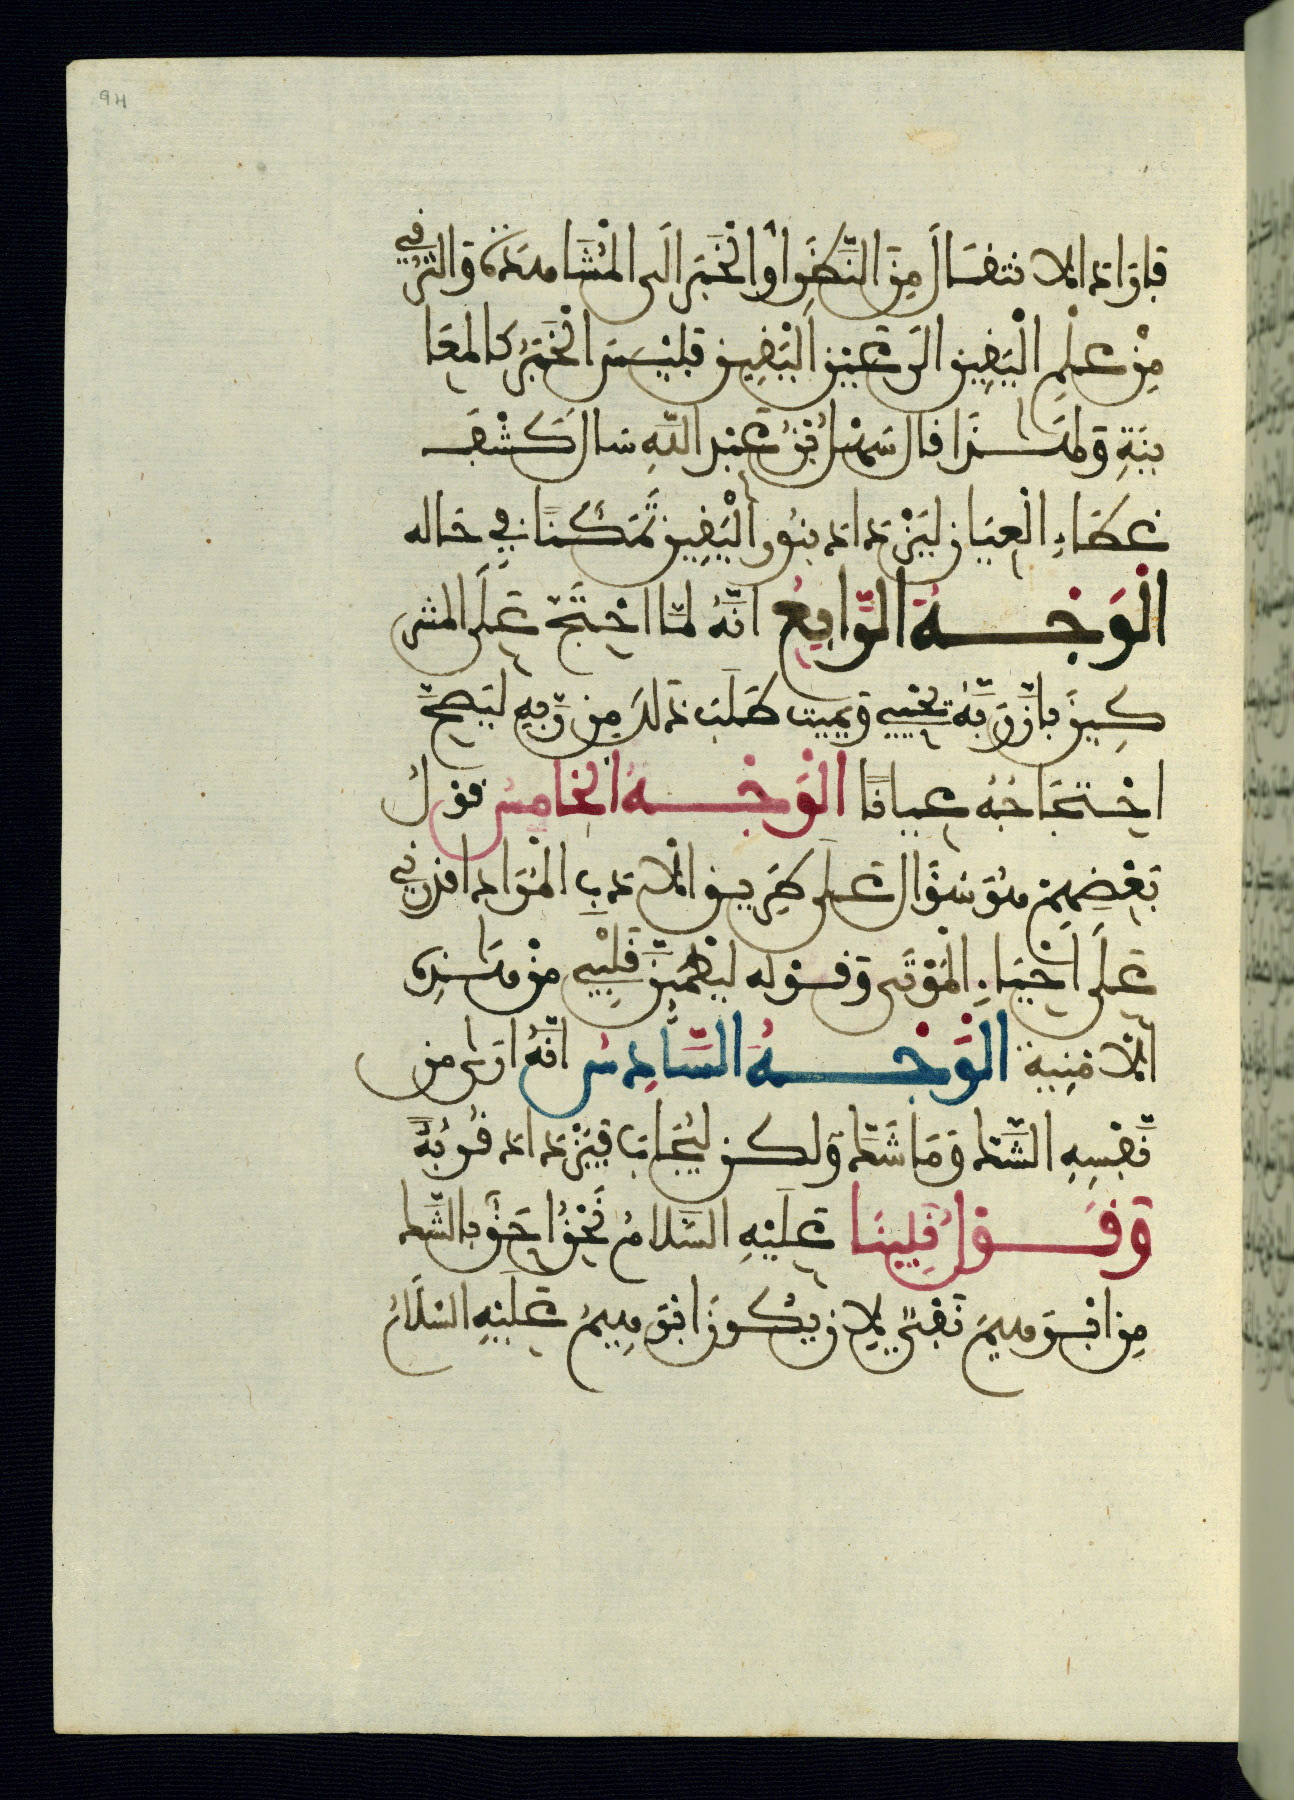 94
فاراد الانتقال من النظر او الخبر الى المشاهدة والترقي
من علم اليقين الى عين اليقين فليس الخبر كالمعا
ينة ولهذا قال سهل بن عبد الله سال كشف
غطاء العيان ليزداد بنور اليقين تمكنا في حاله
الوجه الرابع انه لما احتج على المشر
كين بان ربه يحيي ويميت طلب ذلك من ربه ليصح
احتجاجه عيانا الوجه الخامس قول
بعضهم هو سؤال على طريق الادب المراد اقدرني
على احياء الموتى وقوله ليطمئن قلبي من هذه
الامنية الوجه السادس انه ارى من
نفسه الشك وما شك ولكن ليجاب فيزداد قربه
وقول نبينا عليه السلام نحن احق بالشك
من ابرهيم نفي لان يكون ابرهيم عليه السلام